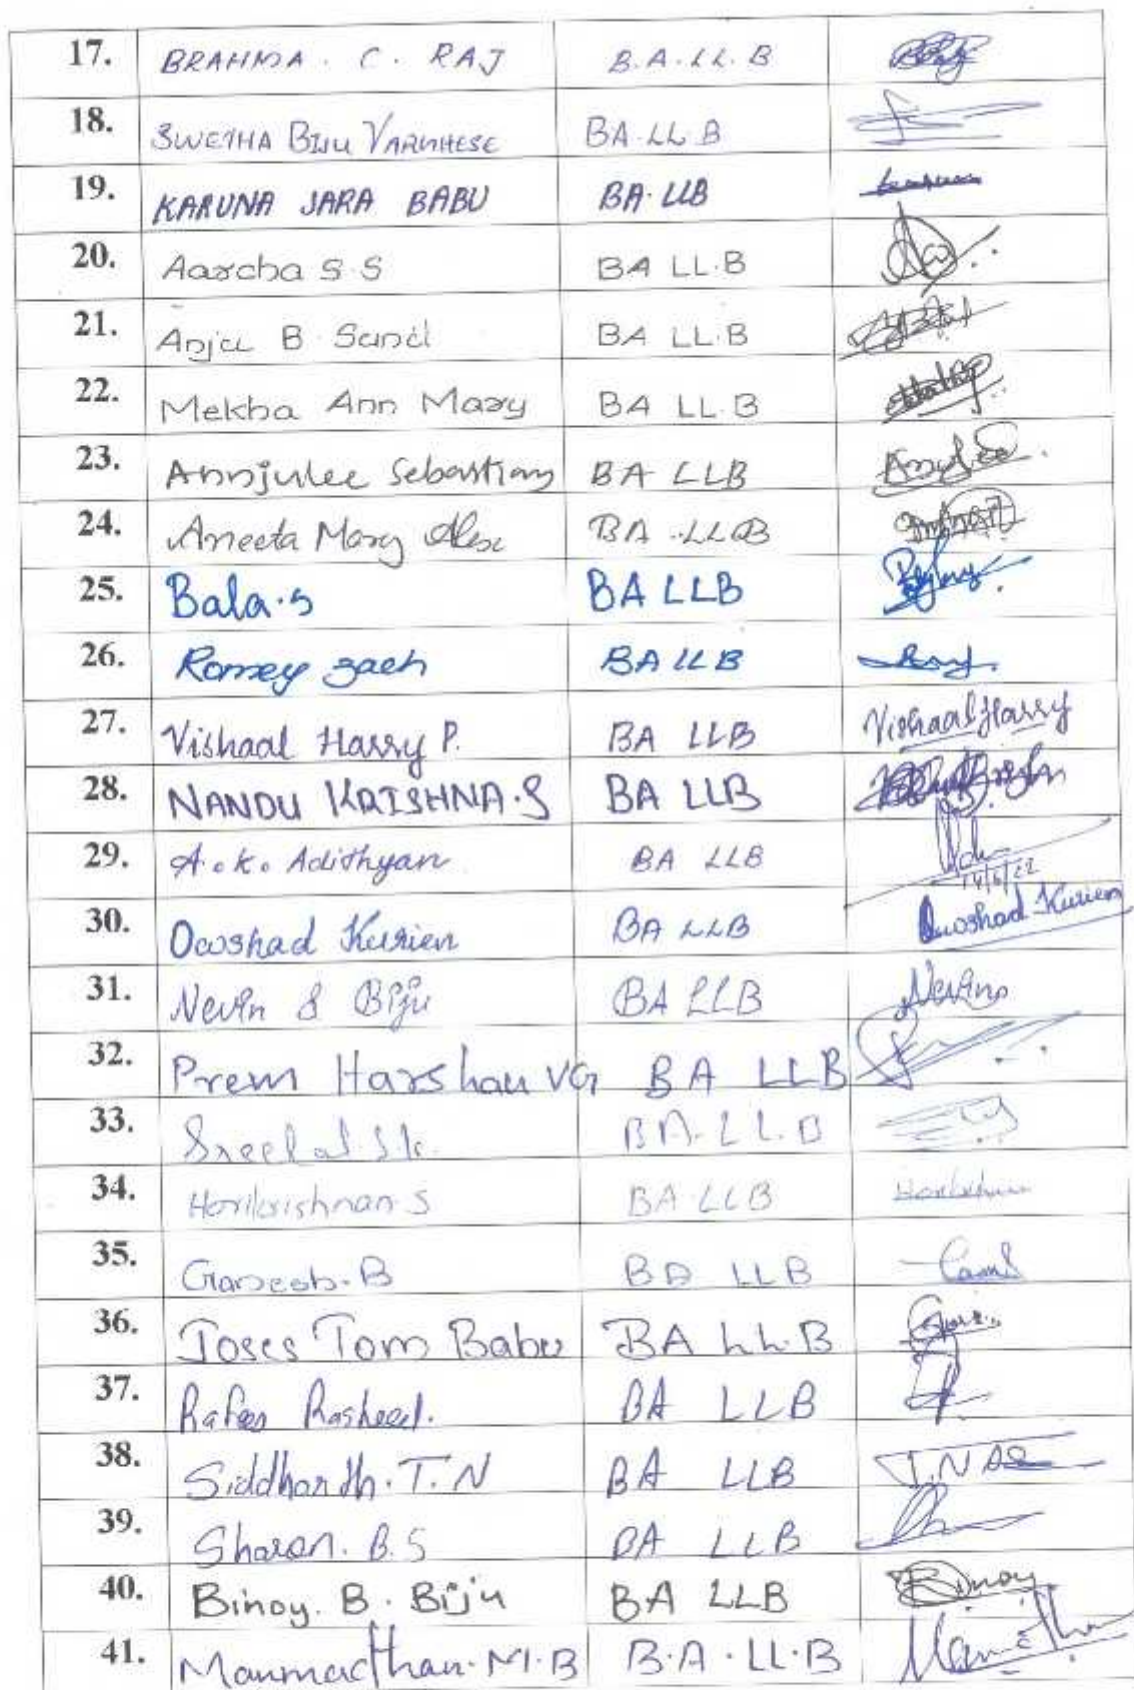 17. BRAHMA. C. RAJ B.A.LL.B
18. SWETHA BIJU VARGHESE BA.LL B
19. KARUNA JARA BABU BA.LLB
20. Aarcha S.S BA LL.B
21. Anju B Sunil BA LL.B
22. Mekha Ann Mary BA LL.B
23. Annjulee Sebastian BA LLB
24. Aneeta Mary Alex BA .LLB
25. Bala.S BA LLB
26. Romey Zach BA LLB
27. Vishaal Harry P. BA LLB Vishaal Harry
28. NANDU KRISHNA.S BA LLB
29. A.K. Adithyan BA LLB 14/6/22
30. Dawshad Kurien BA LLB Kurien
31. Nevin S Biju BA LLB
32. Prem Harshan VG BA LLB
33. BA.LL.B
34. Harikrishnan S BA LLB
35. Ganesh.B BA LLB
36. Joses Tom Babu BA LL.B
37. Rafees Rasheed. BA LLB
38. Siddharth.T.N BA LLB
39. Sharan.B.S BA LLB
40. Binoy. B. Biju BA LLB Binoy
41. Manmadhan.M.B B.A.LL.B